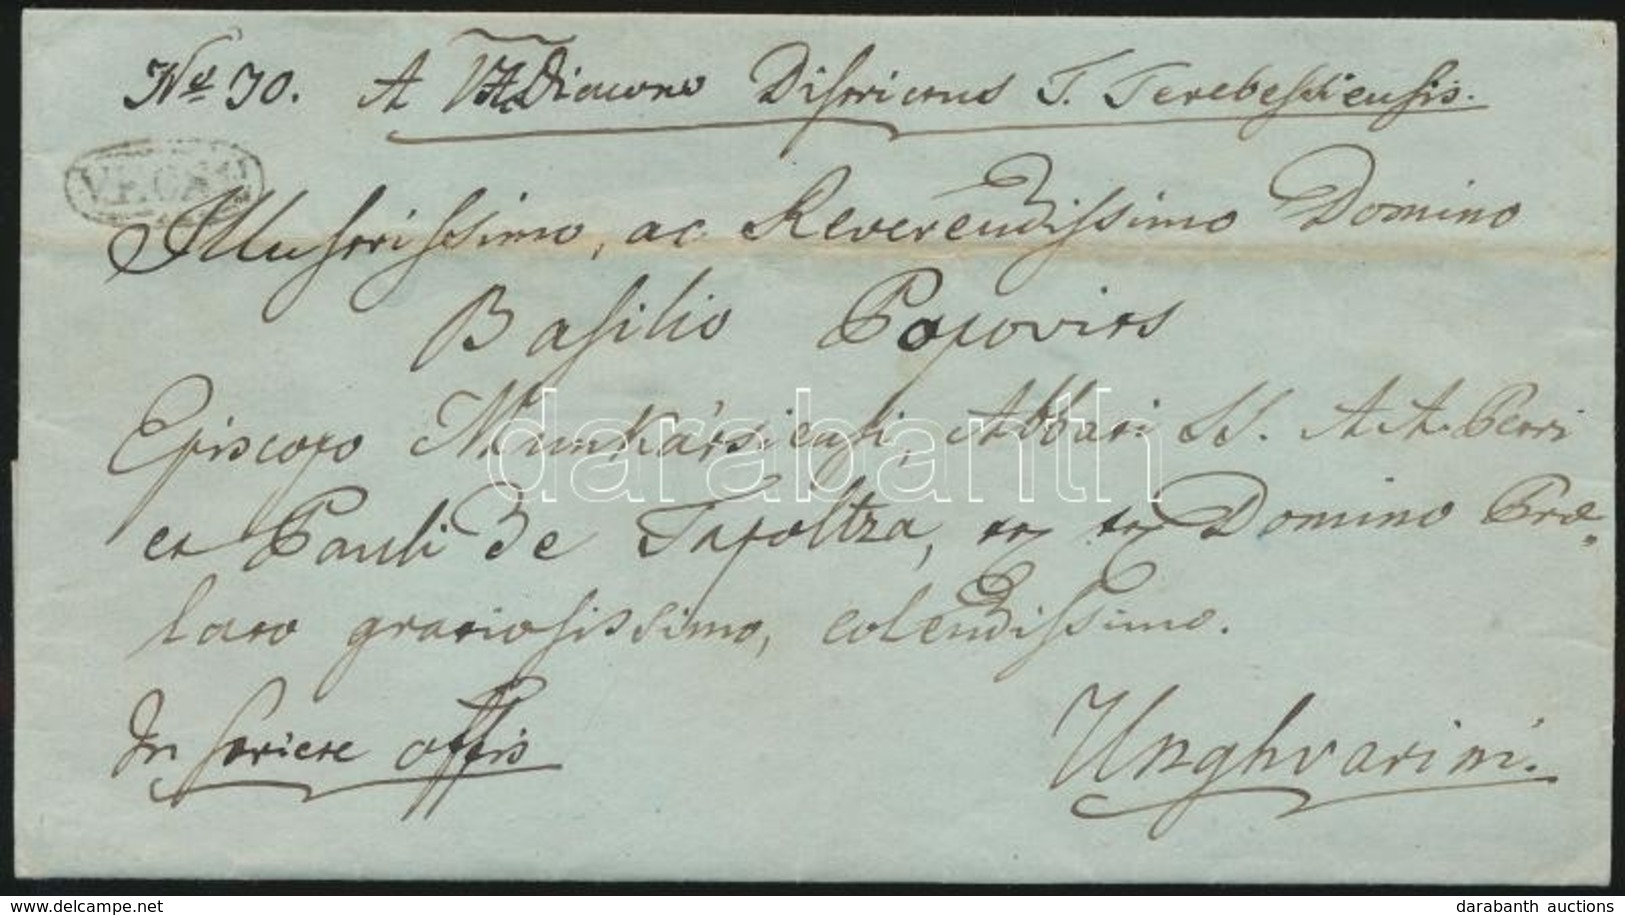 No 70. A V. A. Diacono Districtus T. Terebesiensis.
Illustrissimo, ac Reverendissimo Domino
Basilio Popovits
Episcopo Munkátsiensi, Abbati SS. A. A. Petri
et Pauli de Tapoltza, Domino Prae„
lato gratiosissimo, colendissimo.
In stricte offis
Unghvarini.
darabanth
www.darabanth.com
darabanth auctions